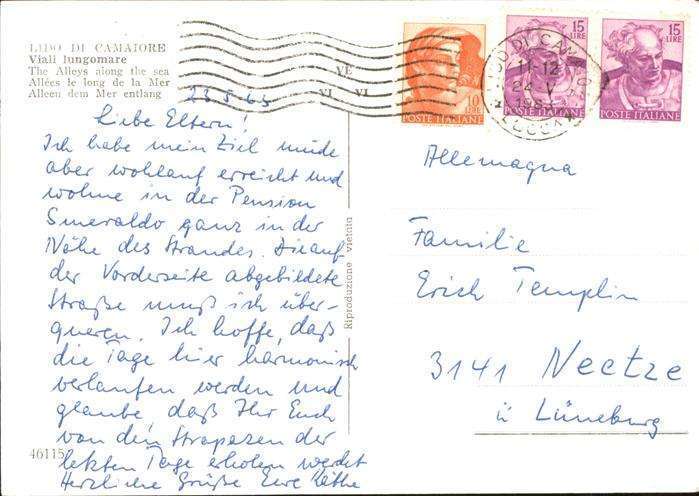 LIDO DI CAMAIORE
Viali lungomare
The Alleys along the sea
Allées le long de la Mer
Alleen dem Mer entlang
23.5.65
Liebe Eltern!
Ich habe mein Ziel müde
aber wohlauf erreicht und
wohne in der Pension
Smeraldo ganz in der
Nähe des Strandes. Die auf
der Vorderseite abgebildete
Straße muß ich über-
queren. Ich hoffe, daß
die Tage hier harmonisch
verlaufen werden und
glaube, daß Ihr Euch
von den Strapazen der
letzten Tage erholen werdet
Herzliche Grüße Eure Käthe
46115
Riproduzione vietata
VE
VI VI
10
LIRE
POSTE ITALIANE
15
LIRE
POSTE ITALIANE
15
LIRE
POSTE ITALIANE
LIDO DI CAMAIORE
11-12
24 V
(LUCCA)
Allemagna
Familie
Erich Templin
3141 Neetze
ü Lüneburg